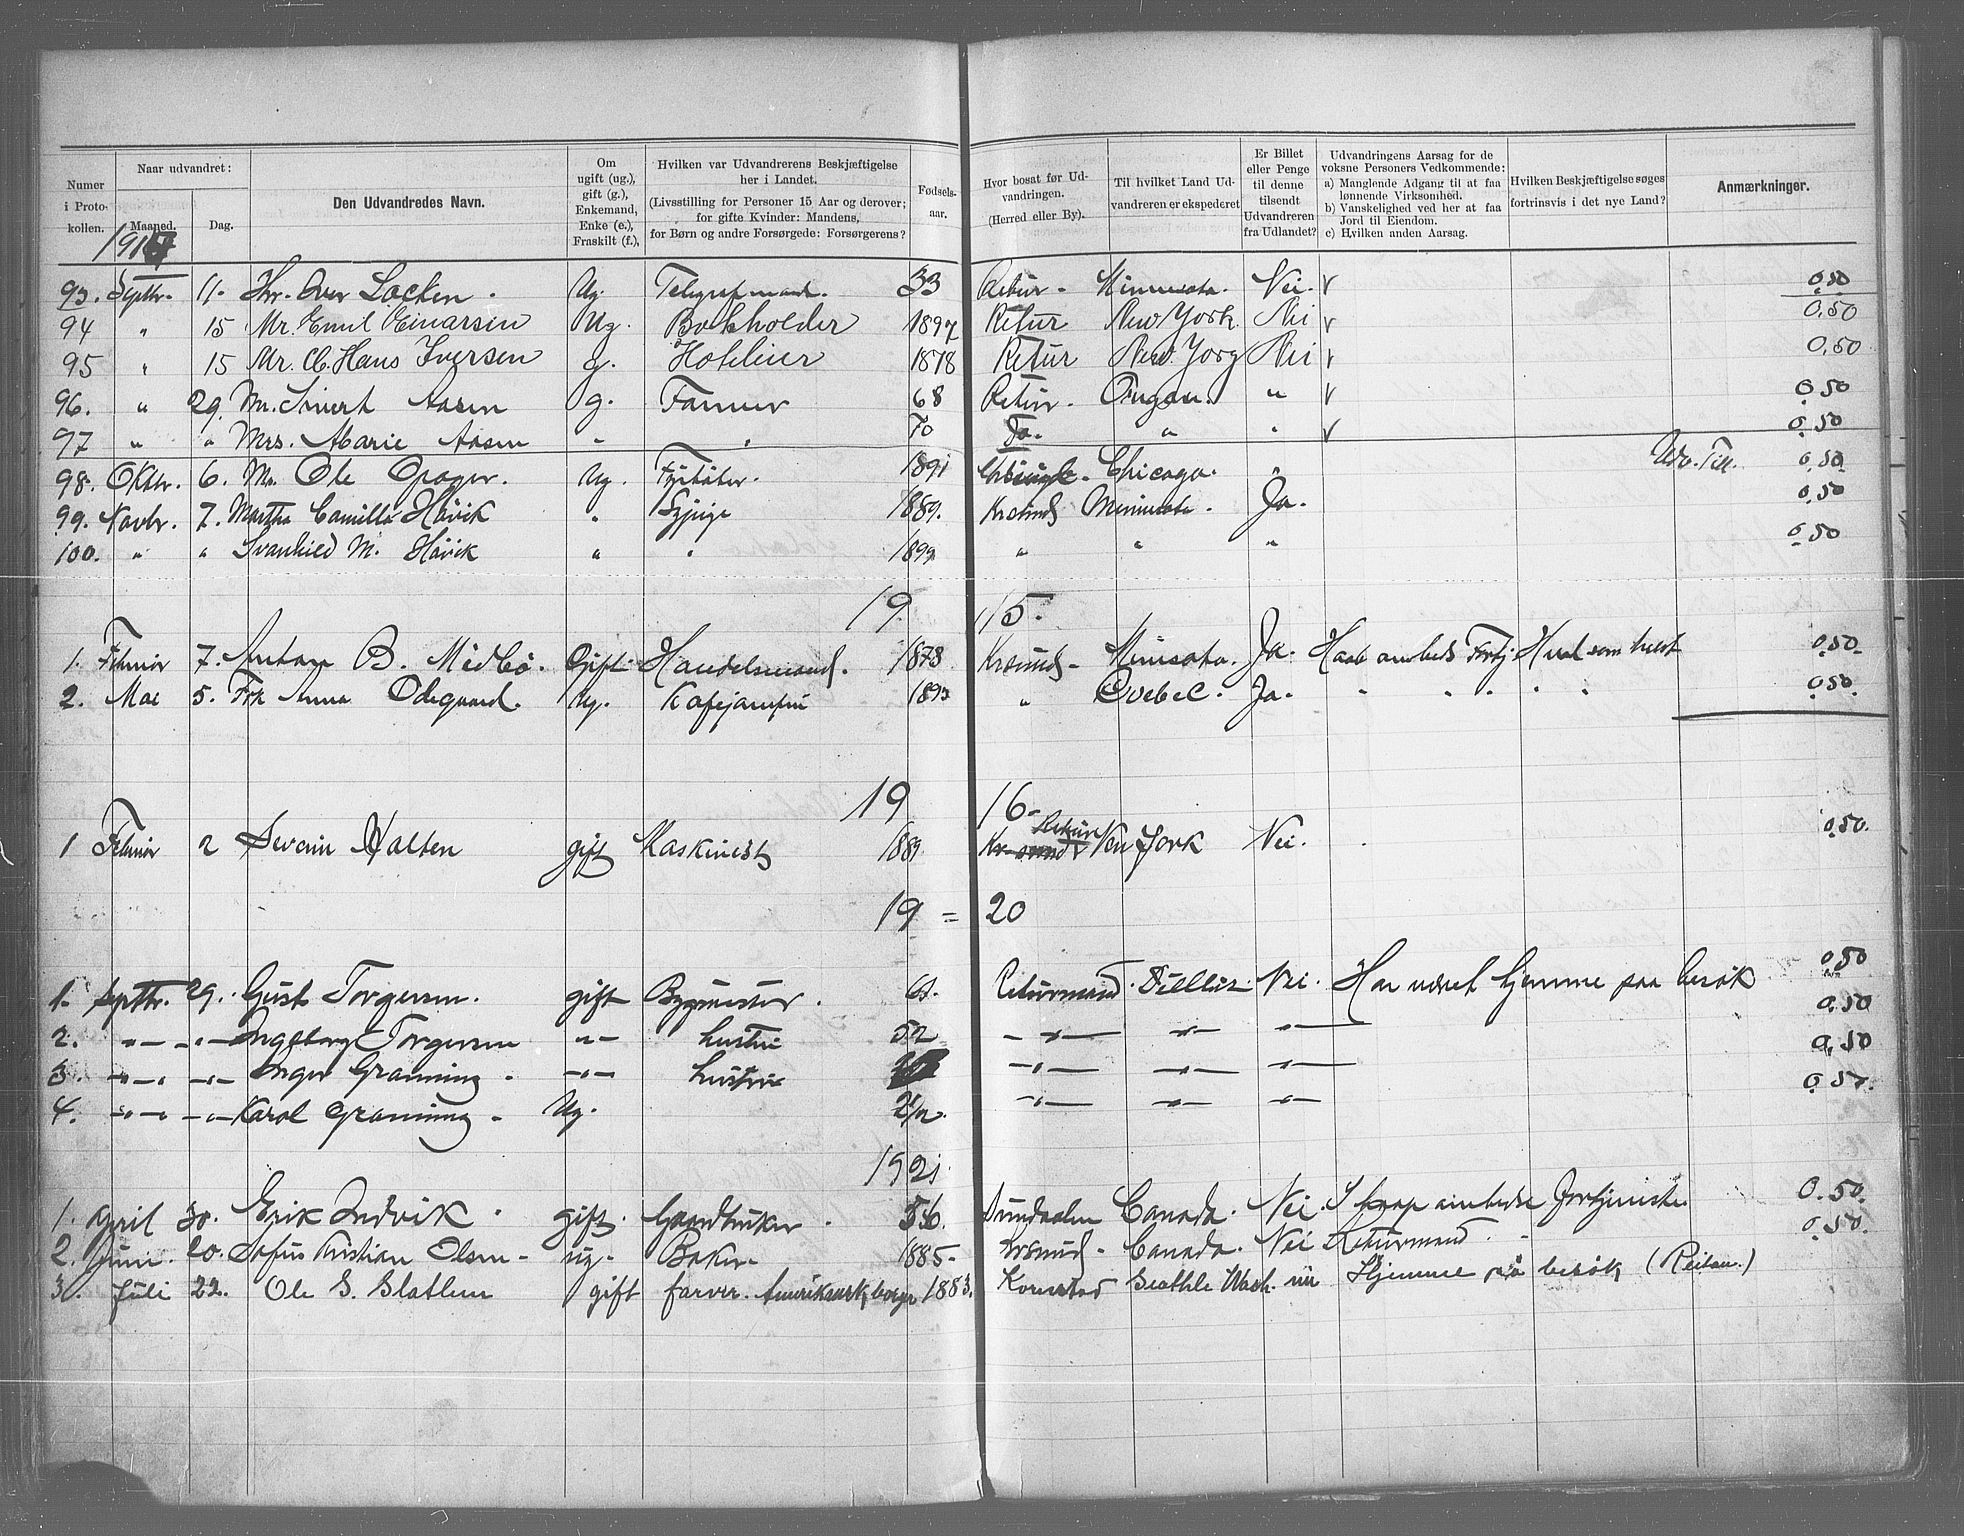 Numer i Protokollen. | Naar udvandret: Maaned. Dag. | Den Udvandredes Navn. | Om ugift (ug.), gift (g.), Enkemand, Enke (e.), Fraskilt (f.), | Hvilken var Udvandrerens Beskjæftigelse her i Landet. (Livsstilling for Personer 15 Aar og derover; for gifte Kvinder: Mandens, for Børn og andre Forsørgede: Forsørgerens? | Fødselsaar. | Hvor bosat før Udvandringen. (Herred eller By). | Til hvilket Land Udvandreren er ekspederet | Er Billet eller Penge til denne tilsendt Udvandreren fra Udlandet? | Udvandringens Aarsag for de voksne Personers Vedkommende: a) Manglende Adgang til at faa lønnende Virksomhed. b) Vanskelighed ved her at faa Jord til Eiendom. c) Hvilken anden Aarsag. | Hvilken Beskjæftigelse søges fortrinsvis i det nye Land? | Anmærkninger.
93. Septbr. 11. Hr. Iver Locken. Ug. Telegrafmand. 33 Retur. Minnesota. Nei. v 0.50
94 " 15 Mr. Emil Einarsen Ug. Bokholder 1897 Retur New York. Nei v 0.50
95 " 15 Mr. C. Hans Iversen g. Hotelier 1878 Retur New Yorg Nei v 0.50
96. " 29. Mr. Sivert Aasen g. Farmer 68 Retur. Oregon. " v 0.50
97 " " Mrs. Marie Aasen " " 70 Do. " " v 0.50
98. Oktbr. 6. Mr. Ole Opager. Ug. Fyrbøter. 1891 Chicago. " Udv. Till. 0.50
99. Novbr. 7. Martha Camilla Håvik " Sypige 1889. Krsund Minnesota. Ja. 0.50
100. " " Svanhild M. Håvik " " 1899 " " " 0.50
19 15.
1. Februar 7. Anton B. Medbö. Gift Handelsmand. 1878 Krsund Minisota. Ja. Haab om beds Fortj. Hvad som helst 0.50
2. Mai 5. Frk Anna Odegaard. Ug. Kafejomfru 1893 " Qvebec. Ja. " " " " " 0.50
19 16
1 Februar 2 Svein Halten gift Maskinist 1889 Kr-sund Retur New Jork Nei. 0.50
19 = 20
1. Septbr. 29. Gust Torgersen. gift Bygmester. 61. Returmand. Nei. Har været hjemme paa besøk 0.50
2. " " Ingeborg Torgersen " hustru 52 " " " 0.50
3. " " Inger Granning. " hustru " " " 0.50
4. " " Karol Granning. Ug. 2 1/2 " " " 0.50
1921
1. April 30. Erik Indvik. gift. Gaardbruker. 56. Sundalen Canada. Nei. I haap om bedre Fortjeneste 0.50
2. Juni. 20. Sofus Kristian Olsen ug. Baker 1885 Krsund. Canada. Nei Returmand. 0.50
3. Juli 22. Ole S. Slatlem gift farver. Amerikansk borger 1883. Kornstad Seattle Wash. nei Hjemme på besök (Reitan.)